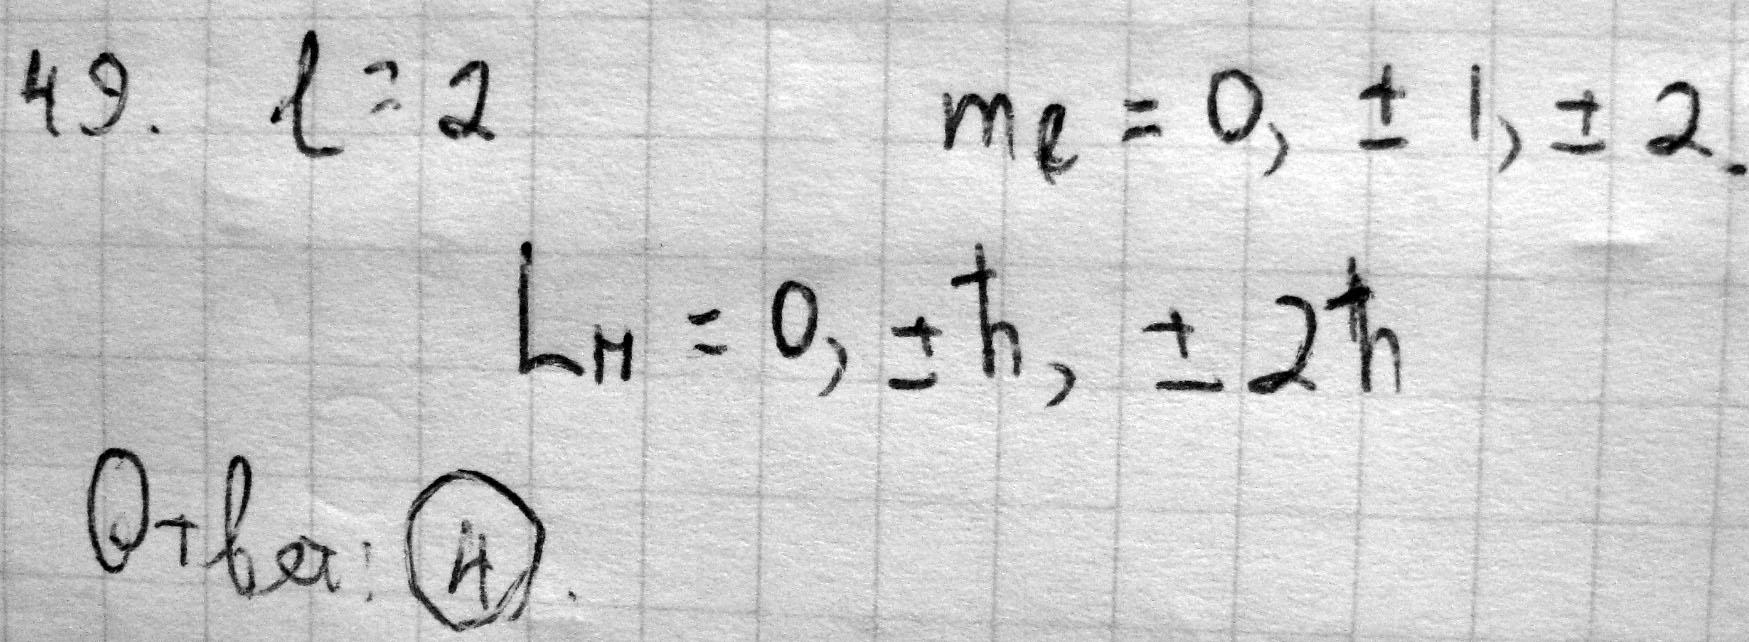 49. l = 2 mₗ = 0, ± 1, ± 2.
Lн = 0, ± ħ, ± 2ħ
Ответ: 4.